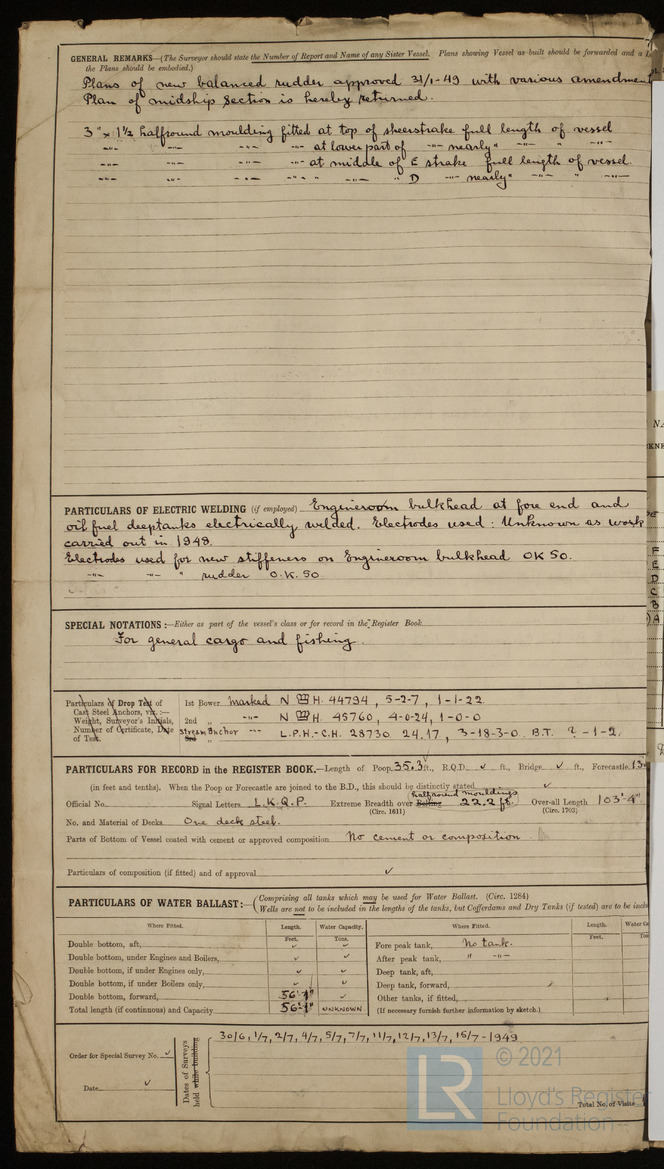 GENERAL REMARKS—(The Surveyor should state the Number of Report and Name of any Sister Vessel. Plans showing Vessel as built should be forwarded and a
the Plans should be embodied.)
Plans of new balanced rudder approved 31/1-49 with various amendment
Plan of midship section is hereby returned.
3" x 1½ halfround moulding fitted at top of sheerstrake full length of vessel
-"- -"- -"- -"- at lower part of -"- nearly " -"- " -"-
-"- -"- -"- -"- at middle of E strake full length of vessel.
-"- -"- -"- -"- " -"- " D -"- nearly " -"- " -"-
PARTICULARS OF ELECTRIC WELDING (if employed) Engineroom bulkhead at fore end and
oil fuel deeptanks electrically welded. Electrodes used: Unknown as work
carried out in 1948.
Electrodes used for new stiffeners on Engineroom bulkhead OK 50.
-"- -"- " rudder O.K. 50
SPECIAL NOTATIONS:—Either as part of the vessel's class or for record in the Register Book
For general cargo and fishing.
Particulars of Drop Test of
Cast Steel Anchors, viz.:—
Weight, Surveyor's Initials,
Number of Certificate, Date
of Test.
1st Bower marked N H. 44794, 5-2-7, 1-1-22
2nd " -"- N H. 45760, 4-0-24, 1-0-0
3rd " Stream Anchor -"- L.P.H.-C.H. 28730 24.17, 3-18-3-0. B.T. ? -1-2.
PARTICULARS FOR RECORD in the REGISTER BOOK.—Length of Poop 35.3 ft., R.Q.D. ✓ ft., Bridge ✓ ft., Forecastle 13
(in feet and tenths). When the Poop or Forecastle are joined to the B.D., this should be distinctly stated ✓
halfround mouldings
Official No. Signal Letters L.K.Q.P. Extreme Breadth over Belting 22.2 ft. Over-all Length 103'-4"
(Circ. 1611) (Circ. 1703)
No. and Material of Decks One deck steel.
Parts of Bottom of Vessel coated with cement or approved composition No cement or composition
Particulars of composition (if fitted) and of approval ✓
PARTICULARS OF WATER BALLAST:—(Comprising all tanks which may be used for Water Ballast. (Circ. 1284)
Wells are not to be included in the lengths of the tanks, but Cofferdams and Dry Tanks (if tested) are to be
Where Fitted. Length. Water Capacity. Where Fitted. Length. Water
Feet. Tons. Feet.
Double bottom, aft, ✓ ✓ Fore peak tank, No tank.
Double bottom, under Engines and Boilers, ✓ ✓ After peak tank, " -"-
Double bottom, if under Engines only, ✓ ✓ Deep tank, aft,
Double bottom, if under Boilers only, ✓ ✓ Deep tank, forward,
Double bottom, forward, 56'-1" ✓ Other tanks, if fitted,
Total length (if continuous) and Capacity 56'-1" UNKNOWN (If necessary furnish further information by sketch.)
Order for Special Survey No. ✓
Date ✓
Dates of Surveys
held while building
30/6, 1/7, 2/7, 4/7, 5/7, 7/7, 11/7, 12/7, 13/7, 15/7-1949
Total No. of Visits
© 2021
LR
Lloyd's Register
Foundation